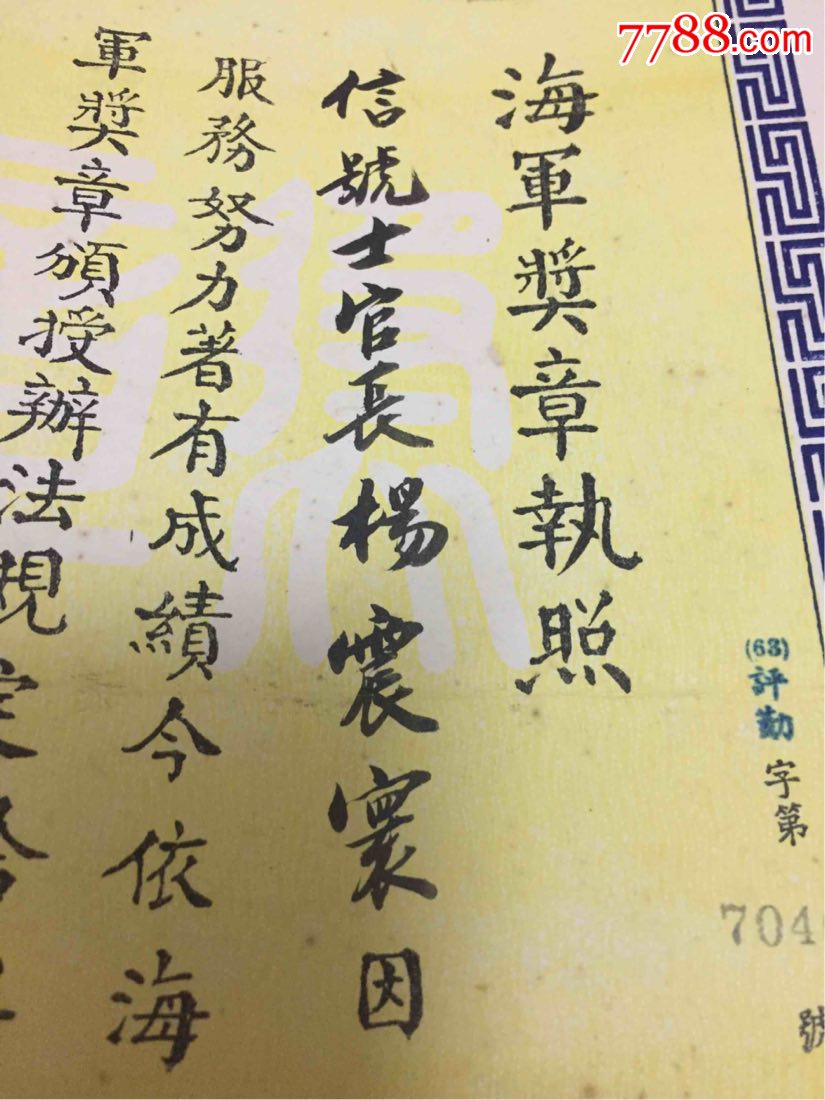 7788.com
海軍獎章執照
信號士官長楊震寰因
服務努力著有成績今依海
軍獎章頒授辦法規定發
(63)評勤字第
704
號